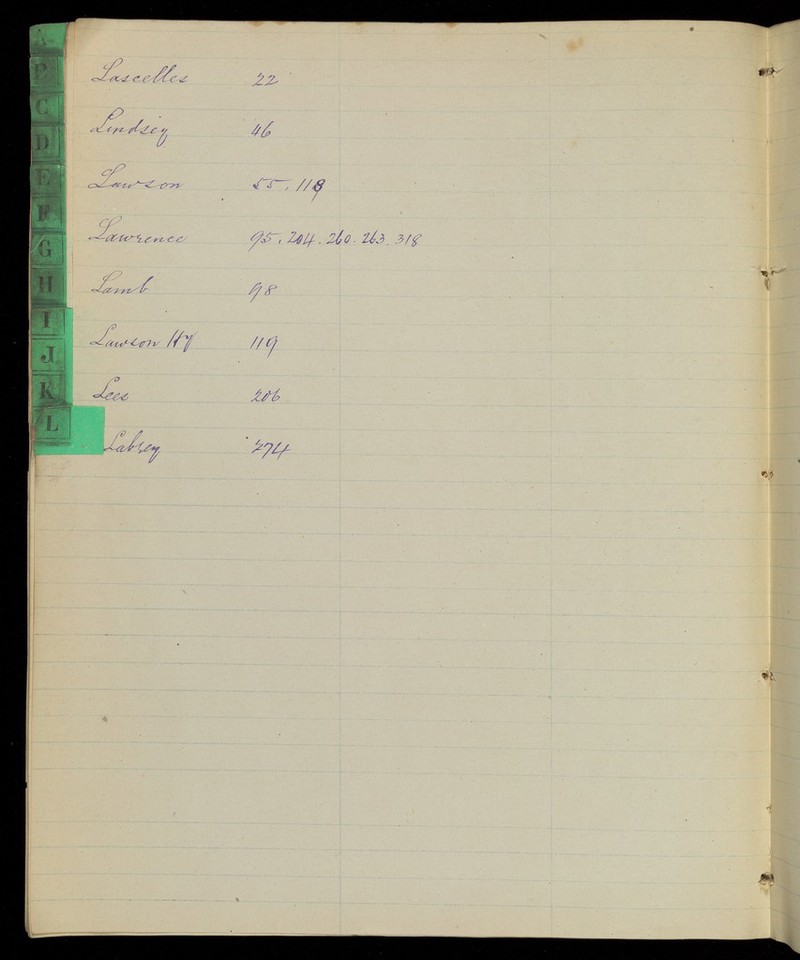 A
B
C
D
E
F
G
H
I
J
K
L
Lascelles 22
Lindsey 46
Lawson 55. 118
Lawrence 95. 204. 260. 263. 318
Lamb 98
Lawson Hy 119
Lees 206
Labrey 274